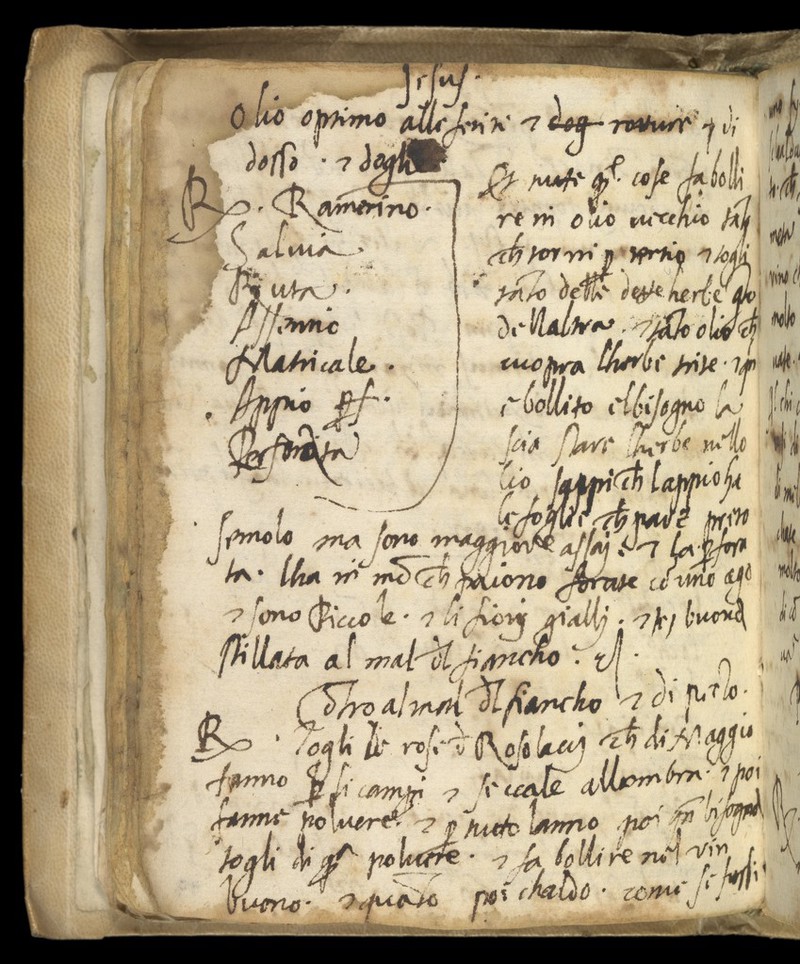 Jesus.
Olio optimo alle ferite ⁊ dog rotture ⁊ di
dosso · ⁊ dogli
R. Ramerino.
Salvia
Ruta.
Assentio
Matricale.
Appio
Perforata
Et tute cose fa bolli
re in olio vecchio tato
ch torni p tertio ⁊ togli
tato delle dette herbe qto
dellaltra. ⁊ tato olio ch
cuopra lherbe trite · ⁊ qn
e bollito elbisogno la
scia stare lherbe nello
lio sappi ch lappio ha
le foglie ch pare preto
semolo ma sono maggiore assaj ⁊ la pfora
ta. lha in mo ch paiono forate co uno ago
⁊ sono Piccole. ⁊ li fiorj giallj. ⁊ buona
stillata al mal dl fiancho.
Otro al mal dl fiancho ⁊ di petto.
R. Togli le rose d Rosolacij ch di Maggio
fanno p li campi ⁊ seccale allombra. ⁊ poi
fanne polvere. ⁊ p tuto lanno poi qn bisogna
togli di polvere. ⁊ fa bollire nel vin
buono. ⁊ quato poi chaldo. come se fussi